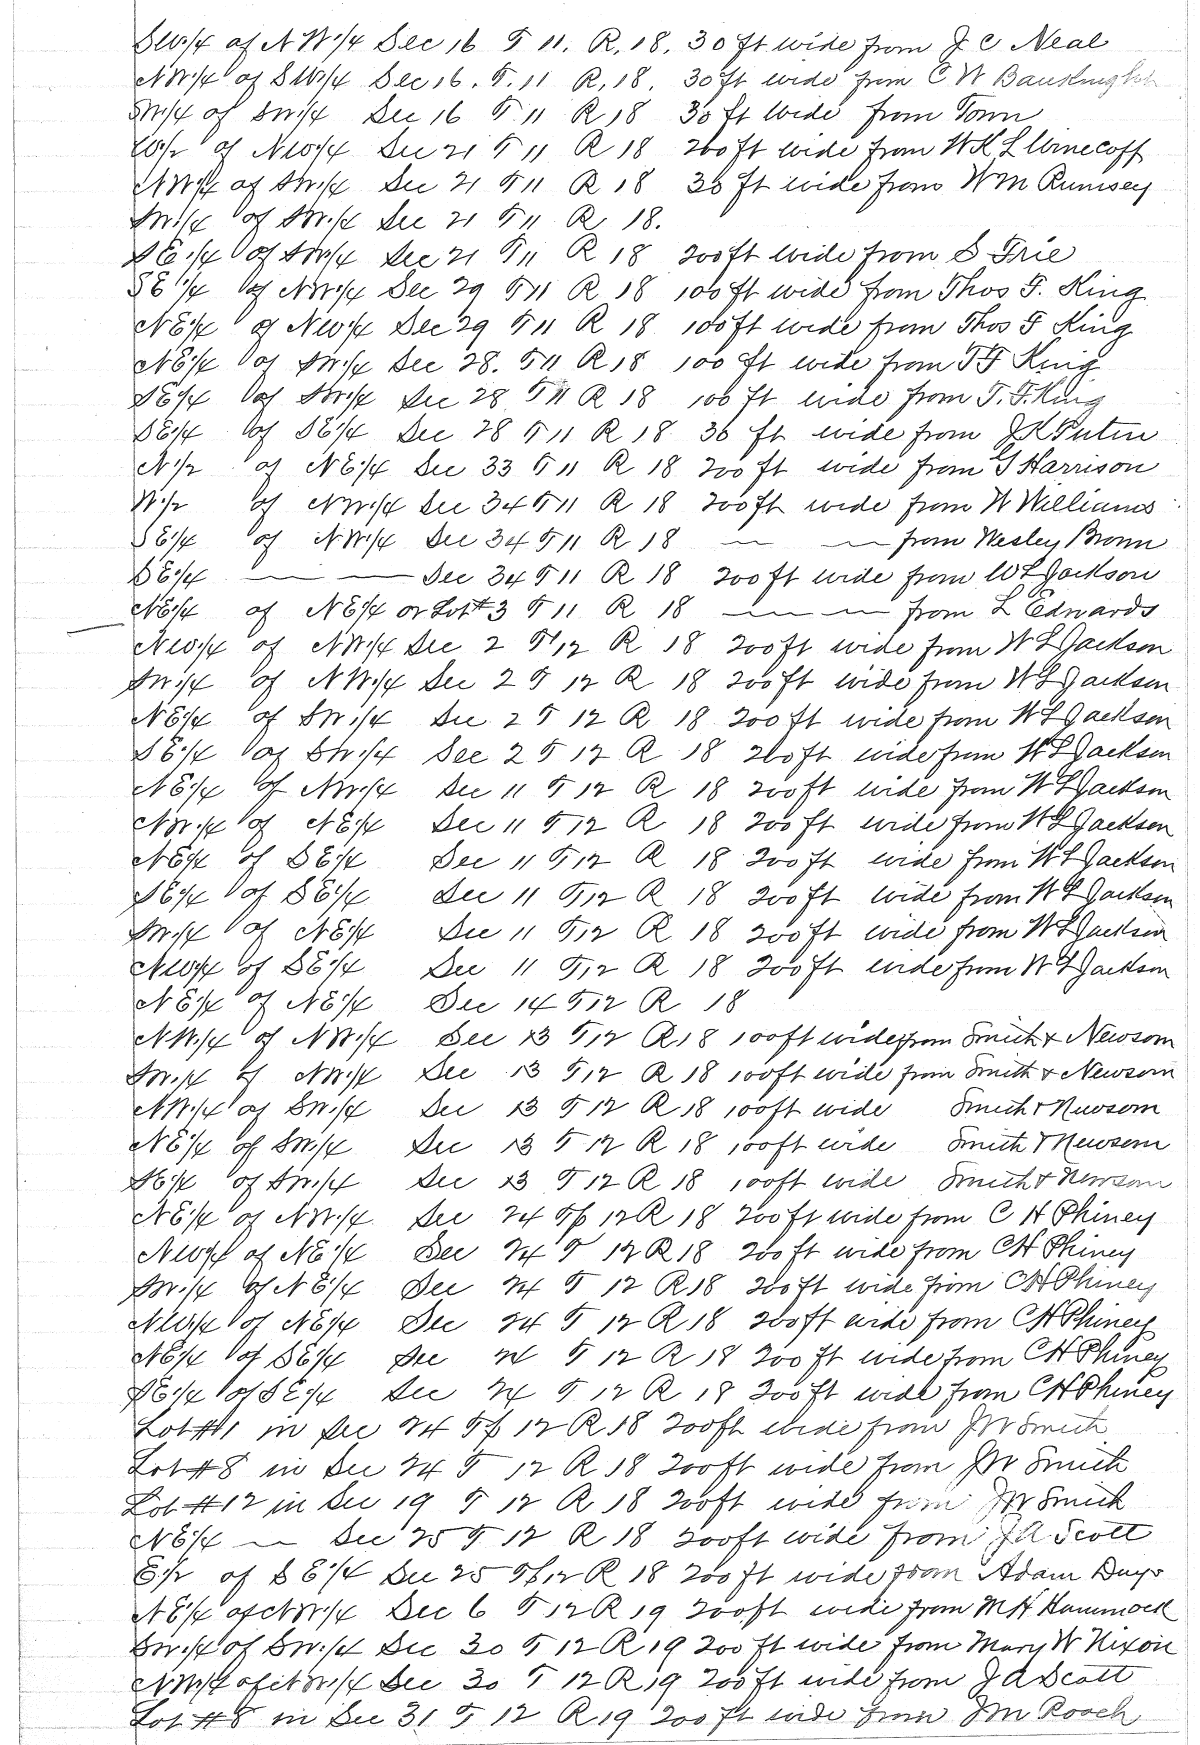 SW¼ of NW¼ Sec 16 T 11. R. 18. 30 ft wide from J C Neal
NW¼ of SW¼ Sec 16. T. 11 R. 18. 30 ft wide from C W Bauknight
SW¼ of SW¼ Sec 16 T 11 R 18 30 ft wide from Town
W½ of NW¼ Sec 21 T 11 R 18 200 ft wide from W K L Winecoff
NW¼ of SW¼ Sec 21 T 11 R 18 30 ft wide from Wm Rumsey
SW¼ of SW¼ Sec 21 T 11 R 18.
SE¼ of SW¼ Sec 21 T 11 R 18 200 ft wide from S Frie
SE¼ of NW¼ Sec 29 T 11 R 18 100 ft wide from Thos F. King
NE¼ of NW¼ Sec 29 T 11 R 18 100 ft wide from Thos F King
NE¼ of SW¼ Sec 28. T 11 R 18 100 ft wide from T F King
SE¼ of SW¼ Sec 28 T 11 R 18 100 ft wide from T. F. King
SE¼ of SE¼ Sec 28 T 11 R 18 30 ft wide from J K
N½ of NE¼ Sec 33 T 11 R 18 200 ft wide from G Harrison
W½ of NW¼ Sec 34 T 11 R 18 200 ft wide from W Williams
SE¼ of NW¼ Sec 34 T 11 R 18 — — from Wesley Brown
SE¼ — — Sec 34 T 11 R 18 200 ft wide from W L Jackson
NE¼ of NE¼ or Lot #3 T 11 R 18 — — from L Edwards
NW¼ of NW¼ Sec 2 T 12 R 18 200 ft wide from W L Jackson
SW¼ of NW¼ Sec 2 T 12 R 18 200 ft wide from W L Jackson
NE¼ of SW¼ Sec 2 T 12 R 18 200 ft wide from W L Jackson
SE¼ of SW¼ Sec 2 T 12 R 18 200 ft wide from W L Jackson
NE¼ of NW¼ Sec 11 T 12 R 18 200 ft wide from W L Jackson
NW¼ of NE¼ Sec 11 T 12 R 18 200 ft wide from W L Jackson
NE¼ of SE¼ Sec 11 T 12 R 18 200 ft wide from W L Jackson
SE¼ of SE¼ Sec 11 T 12 R 18 200 ft wide from W L Jackson
SW¼ of NE¼ Sec 11 T 12 R 18 200 ft wide from W L Jackson
NW¼ of SE¼ Sec 11 T 12 R 18 200 ft wide from W L Jackson
NE¼ of NE¼ Sec 14 T 12 R 18
NW¼ of NW¼ Sec 13 T 12 R 18 100 ft wide from Smith & Newsom
SW¼ of NW¼ Sec 13 T 12 R 18 100 ft wide from Smith & Newsom
NW¼ of SW¼ Sec 13 T 12 R 18 100 ft wide Smith & Newsom
NE¼ of SW¼ Sec 13 T 12 R 18 100 ft wide Smith & Newsom
SE¼ of SW¼ Sec 13 T 12 R 18 100 ft wide Smith & Newsom
NE¼ of NW¼ Sec 24 Tp 12 R 18 200 ft wide from C H Phiney
NW¼ of NE¼ Sec 24 T 12 R 18 200 ft wide from C H Phiney
SW¼ of NE¼ Sec 24 T 12 R 18 200 ft wide from C H Phiney
NW¼ of NE¼ Sec 24 T 12 R 18 200 ft wide from C H Phiney
NE¼ of SE¼ Sec 24 T 12 R 18 200 ft wide from C H Phiney
SE¼ of SE¼ Sec 24 T 12 R 18 200 ft wide from C H Phiney
Lot #1 in Sec 24 Tp 12 R 18 200 ft wide from J W Smith
Lot #8 in Sec 24 T 12 R 18 200 ft wide from J W Smith
Lot #12 in Sec 19 T 12 R 18 200 ft wide from J W Smith
NE¼ — Sec 25 T 12 R 18 200 ft wide from J A Scott
E½ of SE¼ Sec 25 Tp 12 R 18 200 ft wide from Adam Days
NE¼ of NW¼ Sec 6 T 12 R 19 200 ft wide from M H Hammock
SW¼ of SW¼ Sec 30 T 12 R 19 200 ft wide from Mary W Nixon
NW¼ of NW¼ Sec 30 T 12 R 19 200 ft wide from J A Scott
Lot #8 in Sec 31 T 12 R 19 200 ft wide from J M Roach